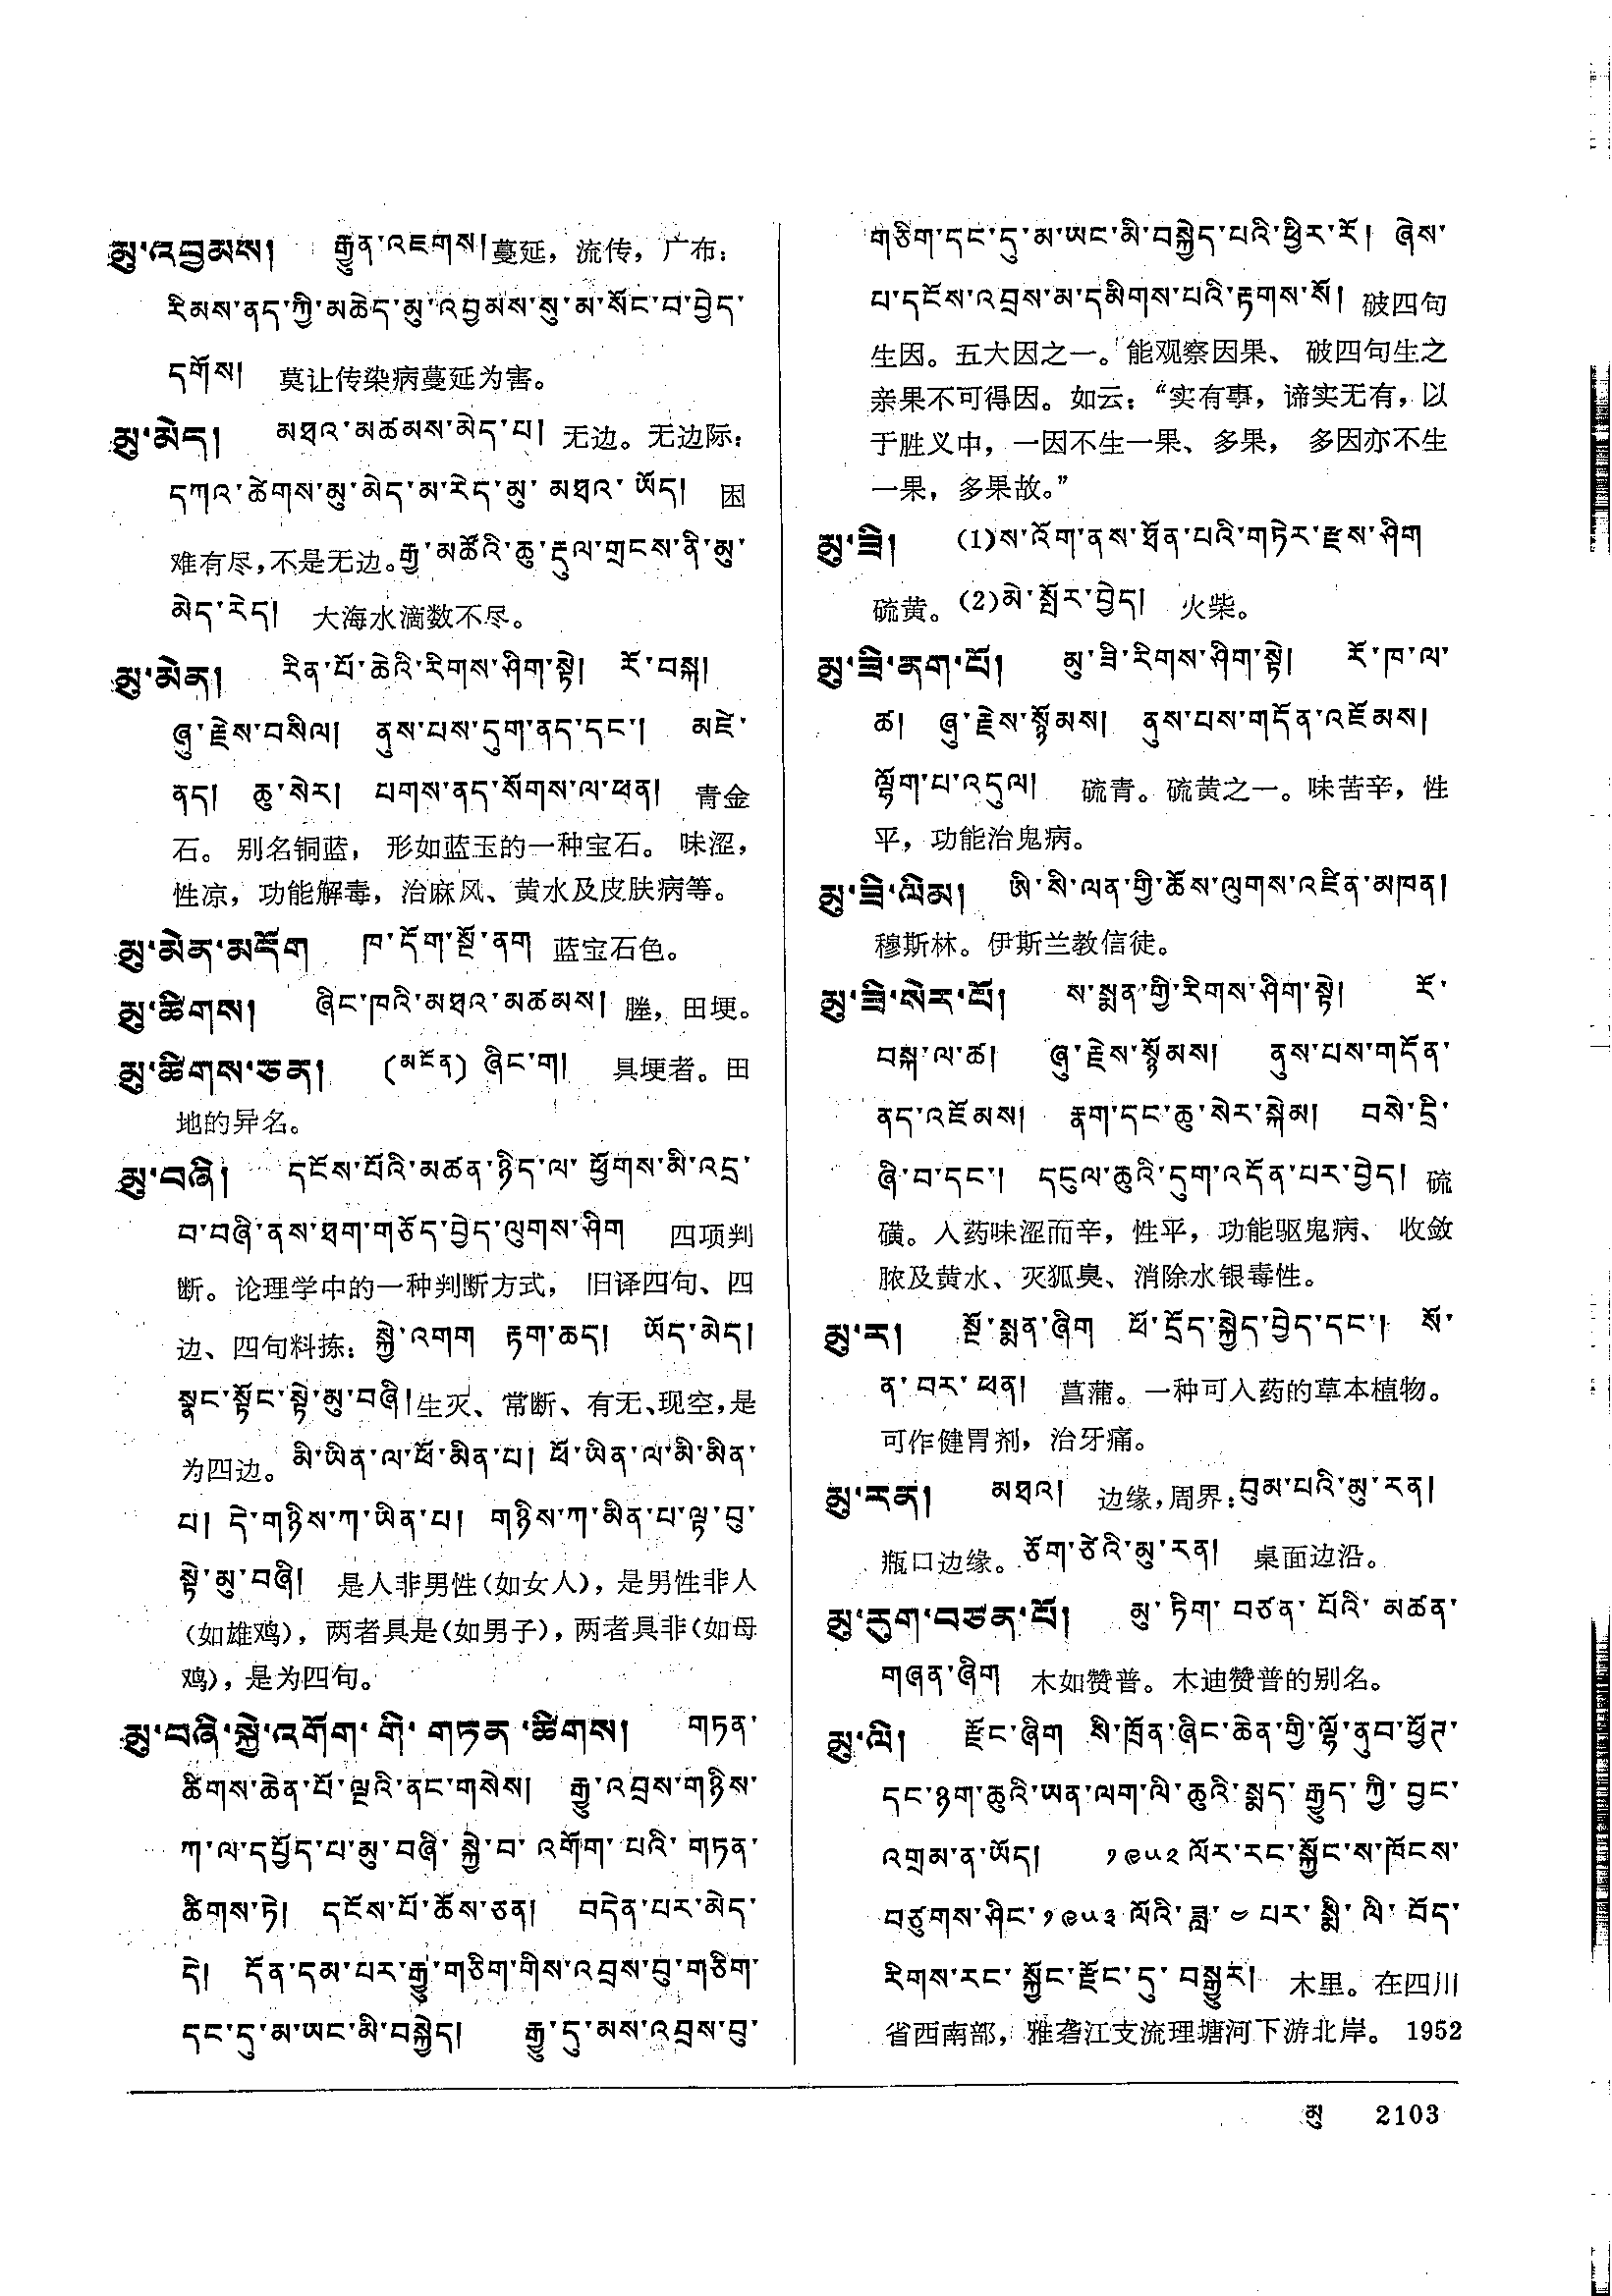 མུ་འབྱམས། རྒྱུན་འཇགས། 蔓延，流传，广布：
རིམས་ནད་ཀྱི་མཆེད་མུ་འབྱམས་སུ་མ་སོང་བ་བྱེད་
དགོས། 莫让传染病蔓延为害。
མུ་མེད། མཐའ་མཚམས་མེད་པ། 无边。无边际：
དཀའ་ཚེགས་མུ་མེད་མ་རེད་མུ་མཐའ་ཡོད། 困
难有尽，不是无边。རྒྱ་མཚོའི་ཆུ་རྡུལ་གྲངས་ནི་མུ་
མེད་རེད། 大海水滴数不尽。
མུ་མེན། རིན་པོ་ཆེའི་རིགས་ཤིག་སྟེ། རོ་བསྐ།
ཞུ་རྗེས་བསིལ། ནུས་པས་དུག་ནད་དང་། མཛེ་
ནད། ཆུ་སེར། པགས་ནད་སོགས་ལ་ཕན། 青金
石。别名铜蓝，形如蓝玉的一种宝石。味涩，
性凉，功能解毒，治麻风、黄水及皮肤病等。
མུ་མེན་མདོག ཁ་དོག་སྔོ་ནག 蓝宝石色。
མུ་ཚིགས། ཞིང་ཁའི་མཐའ་མཚམས། 塍，田埂。
མུ་ཚིགས་ཅན། (མངོན) ཞིང་ག། 具埂者。田
地的异名。
མུ་བཞི། དངོས་པོའི་མཚན་ཉིད་ལ་ཕྱོགས་མི་འདྲ་
བ་བཞི་ནས་ཐག་གཅོད་བྱེད་ལུགས་ཤིག 四项判
断。论理学中的一种判断方式，旧译四句、四
边、四句料拣：སྐྱེ་འགག རྟག་ཆད། ཡོད་མེད།
སྣང་སྟོང་སྟེ་མུ་བཞི། 生灭、常断、有无、现空，是
为四边。མི་ཡིན་ལ་ཕོ་མིན་པ། ཕོ་ཡིན་ལ་མི་མིན་
པ། དེ་གཉིས་ཀ་ཡིན་པ། གཉིས་ཀ་མིན་པ་ལྟ་བུ་
སྟེ་མུ་བཞི། 是人非男性（如女人），是男性非人
（如雄鸡），两者具是（如男子），两者具非（如母
鸡），是为四句。
མུ་བཞི་སྐྱེ་འགོག་གི་གཏན་ཚིགས། གཏན་
ཚིགས་ཆེན་པོ་ལྔའི་ནང་གསེས། རྒྱུ་འབྲས་གཉིས་
ཀ་ལ་དཔྱོད་པ་མུ་བཞི་སྐྱེ་བ་འགོག་པའི་གཏན་
ཚིགས་ཏེ། དངོས་པོ་ཆོས་ཅན། བདེན་པར་མེད་
དེ། དོན་དམ་པར་རྒྱུ་གཅིག་གིས་འབྲས་བུ་གཅིག་
དང་དུ་མ་ཡང་མི་བསྐྱེད། རྒྱུ་དུ་མས་འབྲས་བུ་
གཅིག་དང་དུ་མ་ཡང་མི་བསྐྱེད་པའི་ཕྱིར་རོ། ཞེས་
པ་དངོས་འབྲས་མ་དམིགས་པའི་རྟགས་སོ། 破四句
生因。五大因之一。能观察因果、破四句生之
亲果不可得因。如云：“实有事，谛实无有，以
于胜义中，一因不生一果、多果，多因亦不生
一果，多果故。”
མུ་ཟི། (1)ས་འོག་ནས་ཐོན་པའི་གཏེར་རྫས་ཤིག
硫黄。(2)མེ་སྤོར་བྱེད། 火柴。
མུ་ཟི་ནག་པོ། མུ་ཟི་རིགས་ཤིག་སྟེ། རོ་ཁ་ལ་
ཚ། ཞུ་རྗེས་སྙོམས། ནུས་པས་གདོན་འཇོམས།
ལྷོག་པ་འདུལ། 硫青。硫黄之一。味苦辛，性
平，功能治鬼病。
མུ་ཟི་ལིམ། ཨི་སི་ལན་གྱི་ཆོས་ལུགས་འཛིན་མཁན།
穆斯林。伊斯兰教信徒。
མུ་ཟི་སེར་པོ། ས་སྨན་གྱི་རིགས་ཤིག་སྟེ། རོ་
བསྐ་ལ་ཚ། ཞུ་རྗེས་སྙོམས། ནུས་པས་གདོན་
ནད་འཇོམས། རྣག་དང་ཆུ་སེར་སྐེམ། བསེ་དྲི་
ཞི་བ་དང་། དངུལ་ཆུའི་དུག་འདོན་པར་བྱེད། 硫
磺。入药味涩而辛，性平，功能驱鬼病、收敛
脓及黄水、灭狐臭、消除水银毒性。
མུ་ར། སྔོ་སྨན་ཞིག ཕོ་དྲོད་སྐྱེད་བྱེད་དང་། སོ་
ན་བར་ཕན། 菖蒲。一种可入药的草本植物。
可作健胃剂，治牙痛。
མུ་རན། མཐའ། 边缘，周界：བུམ་པའི་མུ་རན།
瓶口边缘。ཅོག་ཙེའི་མུ་རན། 桌面边沿。
མུ་རུག་བཙན་པོ། མུ་ཏིག་བཙན་པོའི་མཚན་
གཞན་ཞིག 木如赞普。木迪赞普的别名。
མུ་ལི། རྫོང་ཞིག སི་ཁྲོན་ཞིང་ཆེན་གྱི་ལྷོ་ནུབ་ཕྱོཊ་
དང་ཉག་ཆུའི་ཡན་ལག་ལི་ཆུའི་སྨད་རྒྱུད་ཀྱི་བྱང་
འགྲམ་ན་ཡོད། ༡༩༥༢ལོར་རང་སྐྱོང་ས་ཁོངས་
བཙུགས་ཤིང་༡༩༥༣ལོའི་ཟླ་༧པར་སྨི་ལི་བོད་
རིགས་རང་སྐྱོང་རྫོང་དུ་བསྒྱུར། 木里。在四川
省西南部，雅砻江支流理塘河下游北岸。1952
མུ 2103